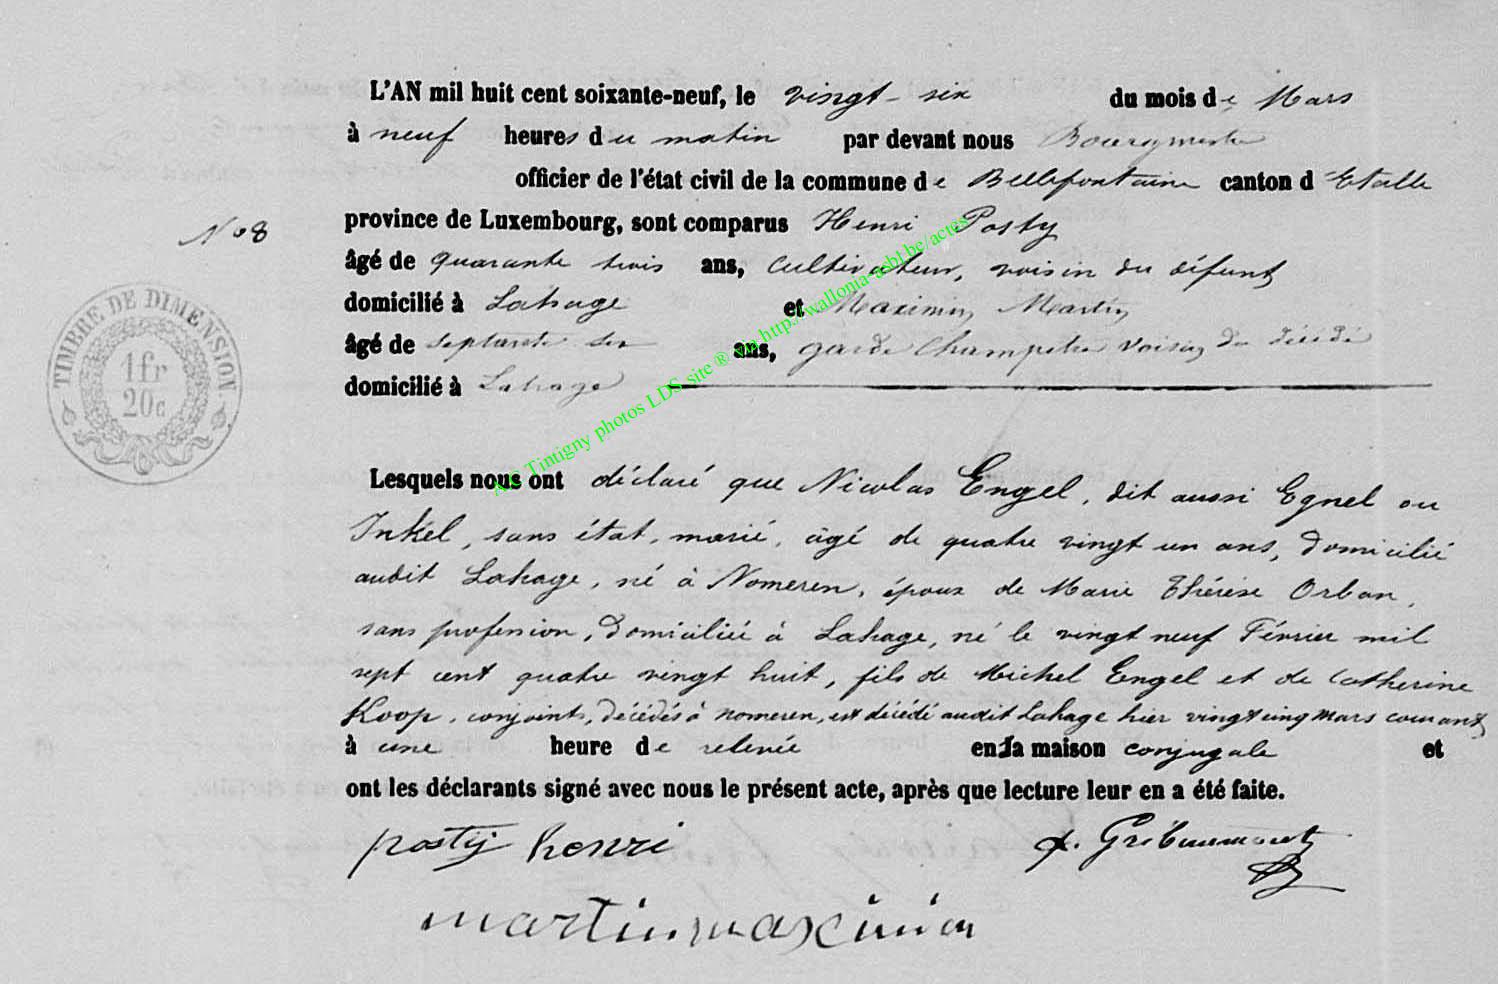 L'AN mil huit cent soixante-neuf, le vingt-six du mois de Mars
à neuf heures du matin par devant nous Bourgmestre
officier de l'état civil de la commune de Bellefontaine canton d'Etalle
N° 8
province de Luxembourg, sont comparus Henri Posty
âgé de quarante trois ans, cultivateur, voisin du défunt
domicilié à Lahage et Maximin Martin
âgé de septante six ans, garde champetre voisin du décédé
domicilié à Lahage
TIMBRE DE DIMENSION
1fr
20c
AG Tintigny photos LDS site ® via http://wallonia-asbl.be/actes
Lesquels nous ont déclaré que Nicolas Engel, dit aussi Egnel ou
Inkel, sans état, marié, âgé de quatre vingt un ans, domicilié
audit Lahage, né à Nomeren, époux de Marie Thérèse Orban,
sans profession, domiciliée à Lahage, né le vingt neuf Février mil
sept cent quatre vingt huit, fils de Michel Engel et de Catherine
Koop, conjoints, décédés à nomeren, est décédé audit Lahage hier vingt cinq mars courant,
à une heure de relevée en la maison conjugale et
ont les déclarants signé avec nous le présent acte, après que lecture leur en a été faite.
postij henri
Gribaumont
martin maximin